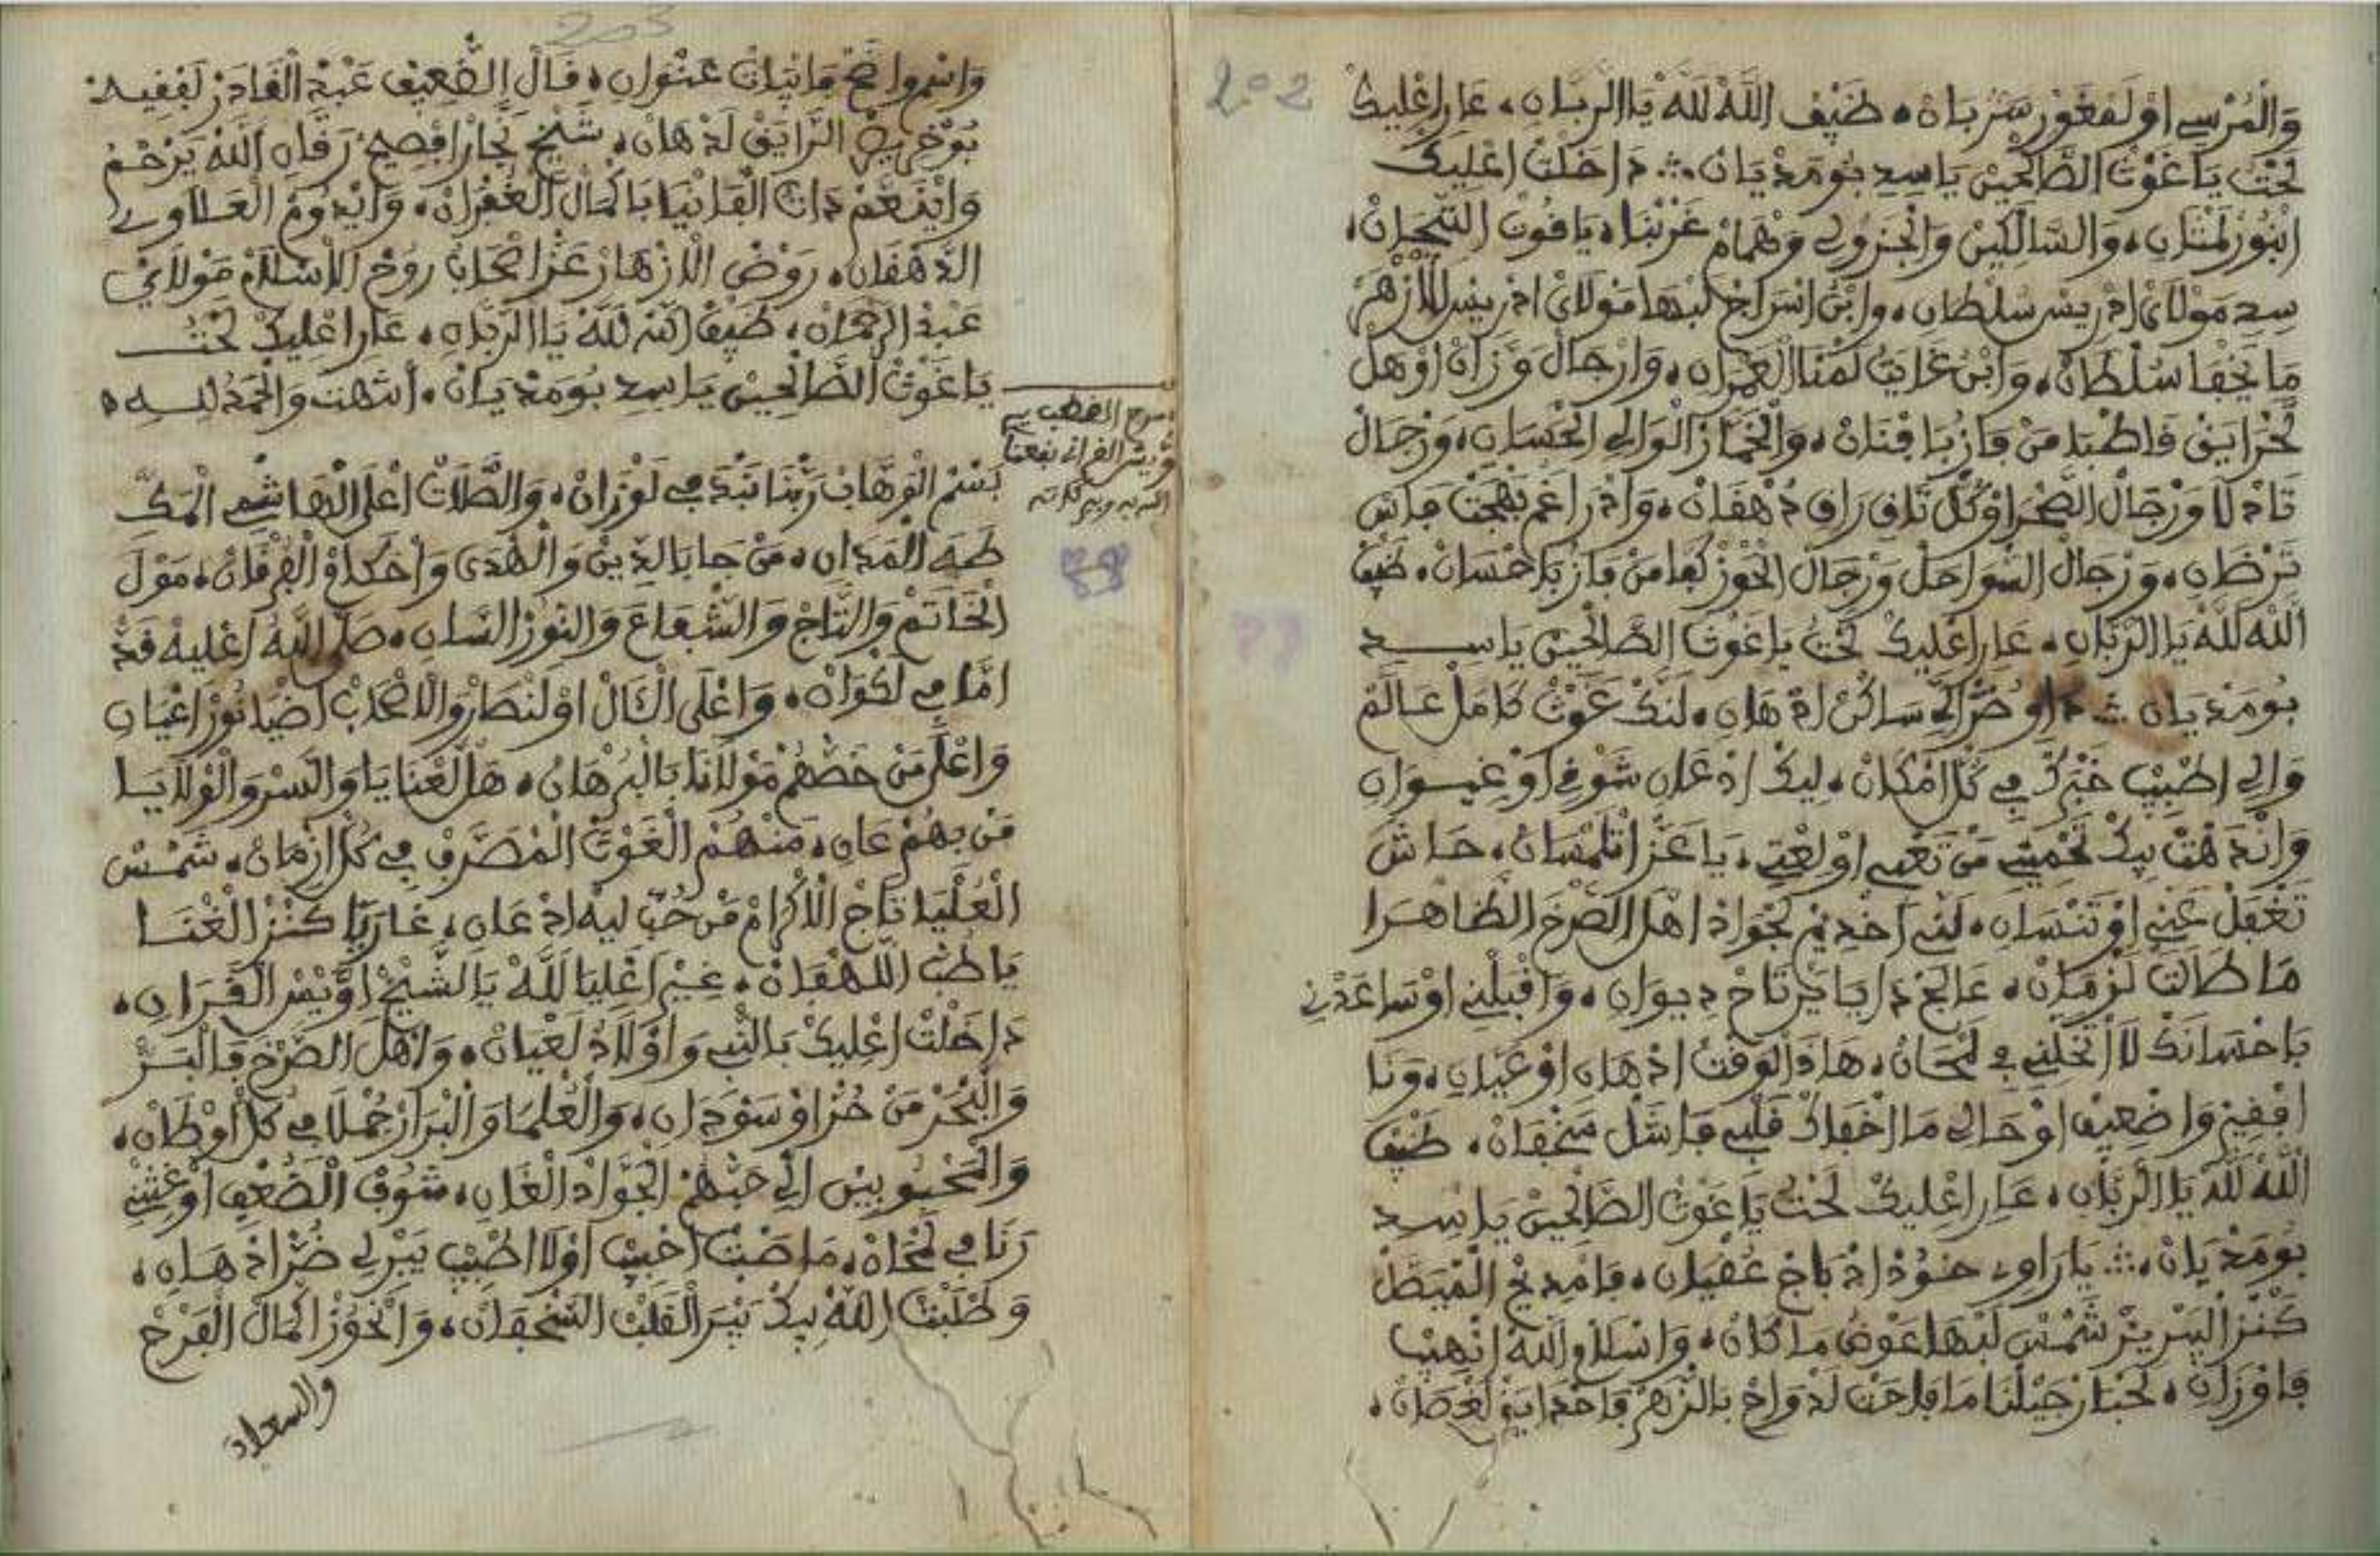 202
وَالْمُرْسِي اوْ لَفغَوْر سَرْبَانْ، ضَيْف اللَّهْ لَلَّهْ يَا الرَّبَّانِ، عَار اعْلِيكْ
لَحْتْ يَا غَوْثْ الصَّالْحِينْ يَا سِيدِ بُومَدْيَانْ ؞ دَاخَلْتْ اعْلِيكْ
ابْنُورْ لَمْتَانِ، وَالسَّالْكِينْ وَالْجَزُولِي وَهْمَامْ غَرْبْنَا، يَاقُوتْ التِّيجَانْ،
سِيدِ مَوْلَايْ ادْرِيسْ سُلْطَانِ، وَابْنُ اسْرَاجْ لَبْهَا مَوْلَايْ ادْرِيسْ لَلْزْهَرْ
مَا يَخْفَا سُلْطَانْ، وَابْنُ غَايْتْ لَمْنَا الْعَمْرَانِ، وَارْجَالْ وَزَّانْ اوْهْلْ
لَحْرَايَقْ فَاطْبَا مَنْ فَازْ بَافْنَانْ، وَالْخَمَّارْ الْوَالِي الْحْسَانِ، وَرْجَالْ
تَادْلَا وَرْجَالْ الصَّحْرَا وْكُلّْ تَافِ رَاقِ دْهْقَانْ، وَادْرَاغَمْ بَهْجَتْ فَاسْ
تَرْضَانِ، وَرْجَالْ السّْوَاحَلْ وَرْجَالْ الْحَوْزْ كَمَا مَنْ فَازْ بَاحْسَانْ، ضَيْف
اللَّهْ لَلَّهْ يَا الرَّبَّانِ، عَار اعْلِيكْ لَحْتْ يَا غَوْثْ الصَّالْحِينْ يَا سِيدِ
بُومَدْيَانِ ؞ دَاوِ ضُرّْ الِّي سَاكَنْ ادْهَانِ، لَنَّكْ غَوْثْ كَامَلْ عَالَمْ
وَالِي اطْبِيبْ خَبْرَكْ فِي كُلّْ امْكَانْ، لِيكْ ادْعَانِ شَوْفِ اوْ غِيوَانِ
وَانْدَهْتْ بِيكْ تَحْمِينِي مَنْ تَعْبِي اوْ لَعْتِي، يَا عَزّْ اتْلَمْسَانْ، حَاشَ
تَغْفَلْ عَنِّي اوْ تَنْسَانِ، لَنِّي اخْدِيمْ لَجْوَادْ اهْلْ الصَّرْخَ الظَّاهْرَا
مَا طَالَتْ لَزْمَانْ، عَالَجْ دَايَا يَرْتَاحْ دِيوَانِ، وَاقْبَلْنِي اوْ سَاعَدْنِي
بَاحْسَانَكْ لَا اتْخَلِّينِي فِي لَمْحَانْ، هَادَ الْوَقْتْ ادْهَانِ اوْ عَيَانِ، وَنَا
افْقِيرْ وَاضْعِيفْ اوْ حَالِي مَا اخْفَاكْ قَلْبِي فَاشَلْ سَخْفَانْ، ضَيْف
اللَّهْ لَلَّهْ يَا الرَّبَّانِ، عَار اعْلِيكْ لَحْتْ يَا غَوْثْ الصَّالْحِينْ يَا سِيدِ
بُومَدْيَانْ، ؞ يَا رَاوِي خُودْ ادْبَاجْ عُقْيَانِ، فَامْدِيحْ الْفَيْضَلْ
كَنْزْ السَّرْ يَزْ شَمْسْ لَبْهَا عَوْضْ مَا كَانْ، وَاسْلَامْ اللَّهْ انْهِيبْ
فَاوْزَانْ، لَحْبَارْ جَيْلْنَا مَا فَاحَتْ لَدْوَاحْ بَالزّْهَرْ فَاحْدَايَقْ لَغْصَانْ،
203
وَاسْمِي وَاضَحْ فَابْيَاتْ عَنْوَانِ، قَالْ الضَّعِيفْ عَبْدْ الْقَادَرْ لَفْقِيهْ
بُوخْرِيصْ الرَّايَقْ لَدْهَانْ، شَيْخْ نَجَّارْ افْصِيحْ رَقَّانِ اللَّهْ يَرْحْمُ
وَايْنَعَّمْ دَاتْ الْفَانْيَا بَاكْمَالْ الْغُفْرَانْ، وَايْدُومْ الْعَلَاوِي
الدَّهْقَانْ، رَوْضْ الْازْهَارْ عَزّْ اصْحَابُ رُوحْ الْاسْلَامْ مَوْلَايْ
عَبْدْ الرَّحْمَانْ، ضَيْف اللَّهْ لَلَّهْ يَا الرَّبَّانِ، عَار اعْلِيكْ لَحْتْ
يَا غَوْثْ الصَّالْحِينْ يَا سِيدِ بُومَدْيَانْ، انْتَهَتْ وَالْحَمْدُ لِلَّهِ
القرني نفعنا
بَسْمْ الْوَهَّابْ رَبّْنَا نَبْدَ فِي لَوْزَانْ، وَالصَّلَاتْ اعْلَى الْهَاشْمِي الْمَكِّ
طَهَ الْمَدَانِ، مَنْ جَا بَالدِّينْ وَالْهُدَى وَاحْكَامْ الْفُرْقَانْ، مَوْلَ
الْخَاتَمْ وَالتَّاجْ وَالشّْعَاعَ وَالنُّورْ السَّانِ، صَلَّى اللَّهُ اعْلِيهْ قَدّْ
امَّا فِي لَكْوَانْ، وَاعْلَى الْآلْ اوْ لَنْصَارْ وَالْاصْحَابْ اضْيَا نُورْ اعْيَانِ
وَاعْلَى مَنْ خَصّْهُمْ مَوْلَانَا بَالْبُرْهَانْ، هَلْ لَعْنَايَا وَالسَّرْ وَالْوْلَايَا
مَنْ بهُمْ عَانِ، مَنْهُمْ الْغَوْثْ الْمْصَرَّفْ فِي كُلّْ ازْمَانْ، شَمْسْ
الْعُلْيَا تَاجْ الْاكْرَامْ مَنْ حُبّْ لِيهْ ادْعَانِ، غَارَ يَا كَنْزْ الْغْنَا
يَا طَبْ اللَّهْفَانْ، غِيرْ اعْلِيَا لَلَّهْ يَا الشَّيْخْ اوَّيْسْ الْقَرَانِ،
دَاخَلْتْ اعْلِيكْ بَالنّْبِي وَاوْلَادُ لَعْيَانْ، وَاهْلْ الصَّرْخَ فَالْبَرّْ
وَالْبْحَرْ مَنْ حُرّْ اوْ سَوْدَانِ، وَالْعُلَمَا وَالْبْرَارْ جُمْلَا فِي كُلّْ اوْطَانْ،
وَالْمَحْبُوبِينْ الِّي حَبّْهُمْ الْجَوَّادْ الْغَانِ، شُوفْ الضُّعْفِ اوْ غِثْنِي
رَنَا فِي لَمْحَانْ، مَا صَبْتْ احْبِيبْ اوْلَا اطْبِيبْ يَبْرِي ضُرّْ ادْهَانِ،
وَطْلَبْتْ اللَّهْ بِيكْ يَبْرَ الْقَلْبْ السَّخْفَانْ، وَانْحُوزْ اكْمَالْ الْفَرْحْ
والسعد